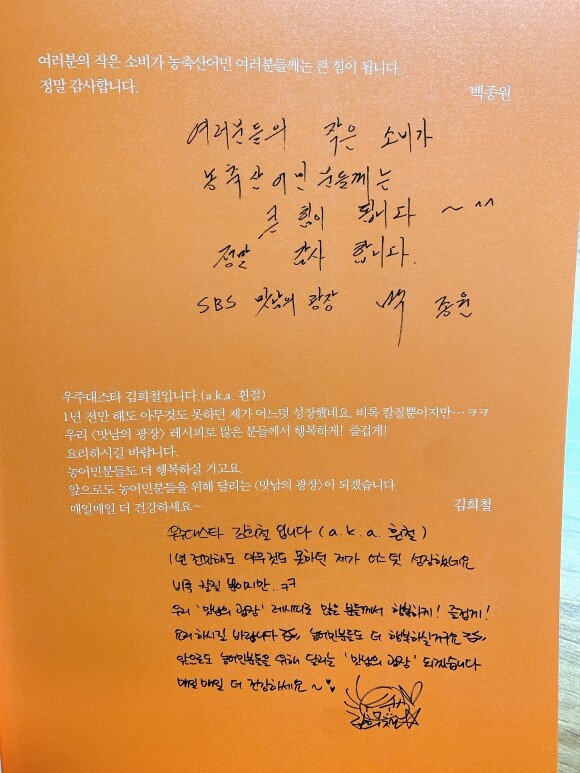 여러분의 작은 소비가 농축산어민 여러분들께는 큰 힘이 됩니다.
정말 감사합니다.
백종원
여러분들의 작은 소비가
농축산어민 분들께는
큰 힘이 됩니다 ~ ^^
정말 감사 합니다.
SBS 맛남의 광장 백종원
우주대스타 김희철입니다.(a.k.a. 흰철)
1년 전만 해도 아무것도 못하던 제가 어느덧 성장했네요. 비록 칼질뿐이지만…ㅋㅋ
우리 〈맛남의 광장〉 레시피로 많은 분들께서 행복하게! 즐겁게!
요리하시길 바랍니다.
농어민분들도 더 행복하실 거고요.
앞으로도 농어민분들을 위해 달리는 〈맛남의 광장〉이 되겠습니다.
매일매일 더 건강하세요~
김희철
우주대스타 김희철 입니다 (a.k.a. 흰철)
1년 전만해도 아무것도 못하던 제가 어느덧 성장했네요
비록 칼질 뿐이지만..ㅋㅋ
우리 '맛남의 광장' 레시피로 많은 분들께서 행복하게! 즐겁게!
요리하시길 바랍니다 농어민분들도 더 행복하실거구요
앞으로도 농어민분들을 위해 달리는 '맛남의 광장' 되겠습니다
매일매일 더 건강하세요 ~